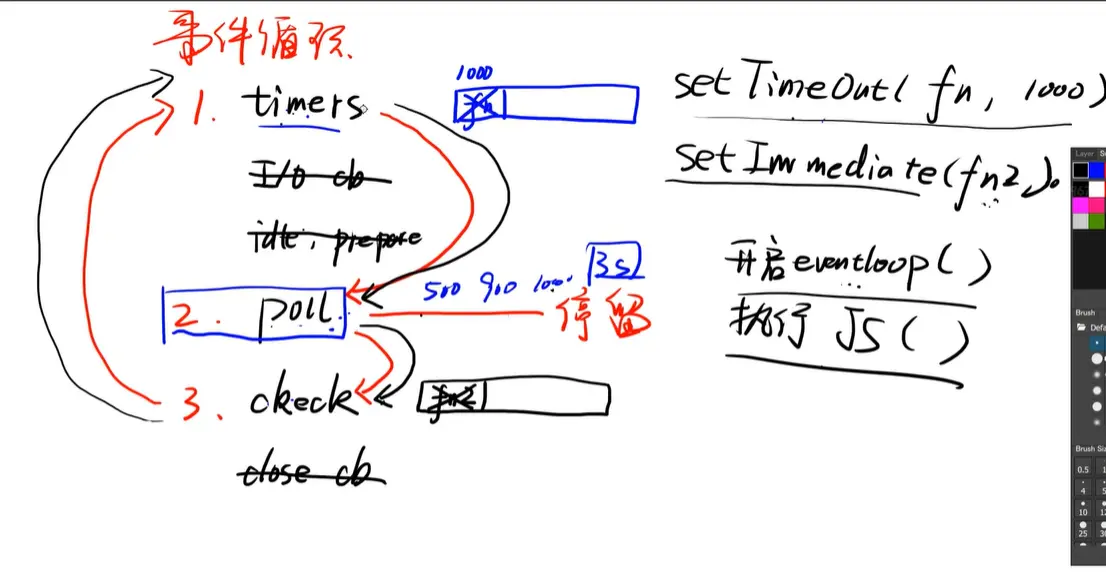 事件循环
1. timers
1000
fn
I/O cb
idle, prepare
2. poll
500 900 1000 3s
停留
3. ckeck
fn2
close cb
setTimeOut( fn, 1000)
setImmediate(fn2).
开启eventloop()
执行 JS ( )
Layer
Brush
Defa
Brush Siz
0.5 1
4 5
10 12
25 30